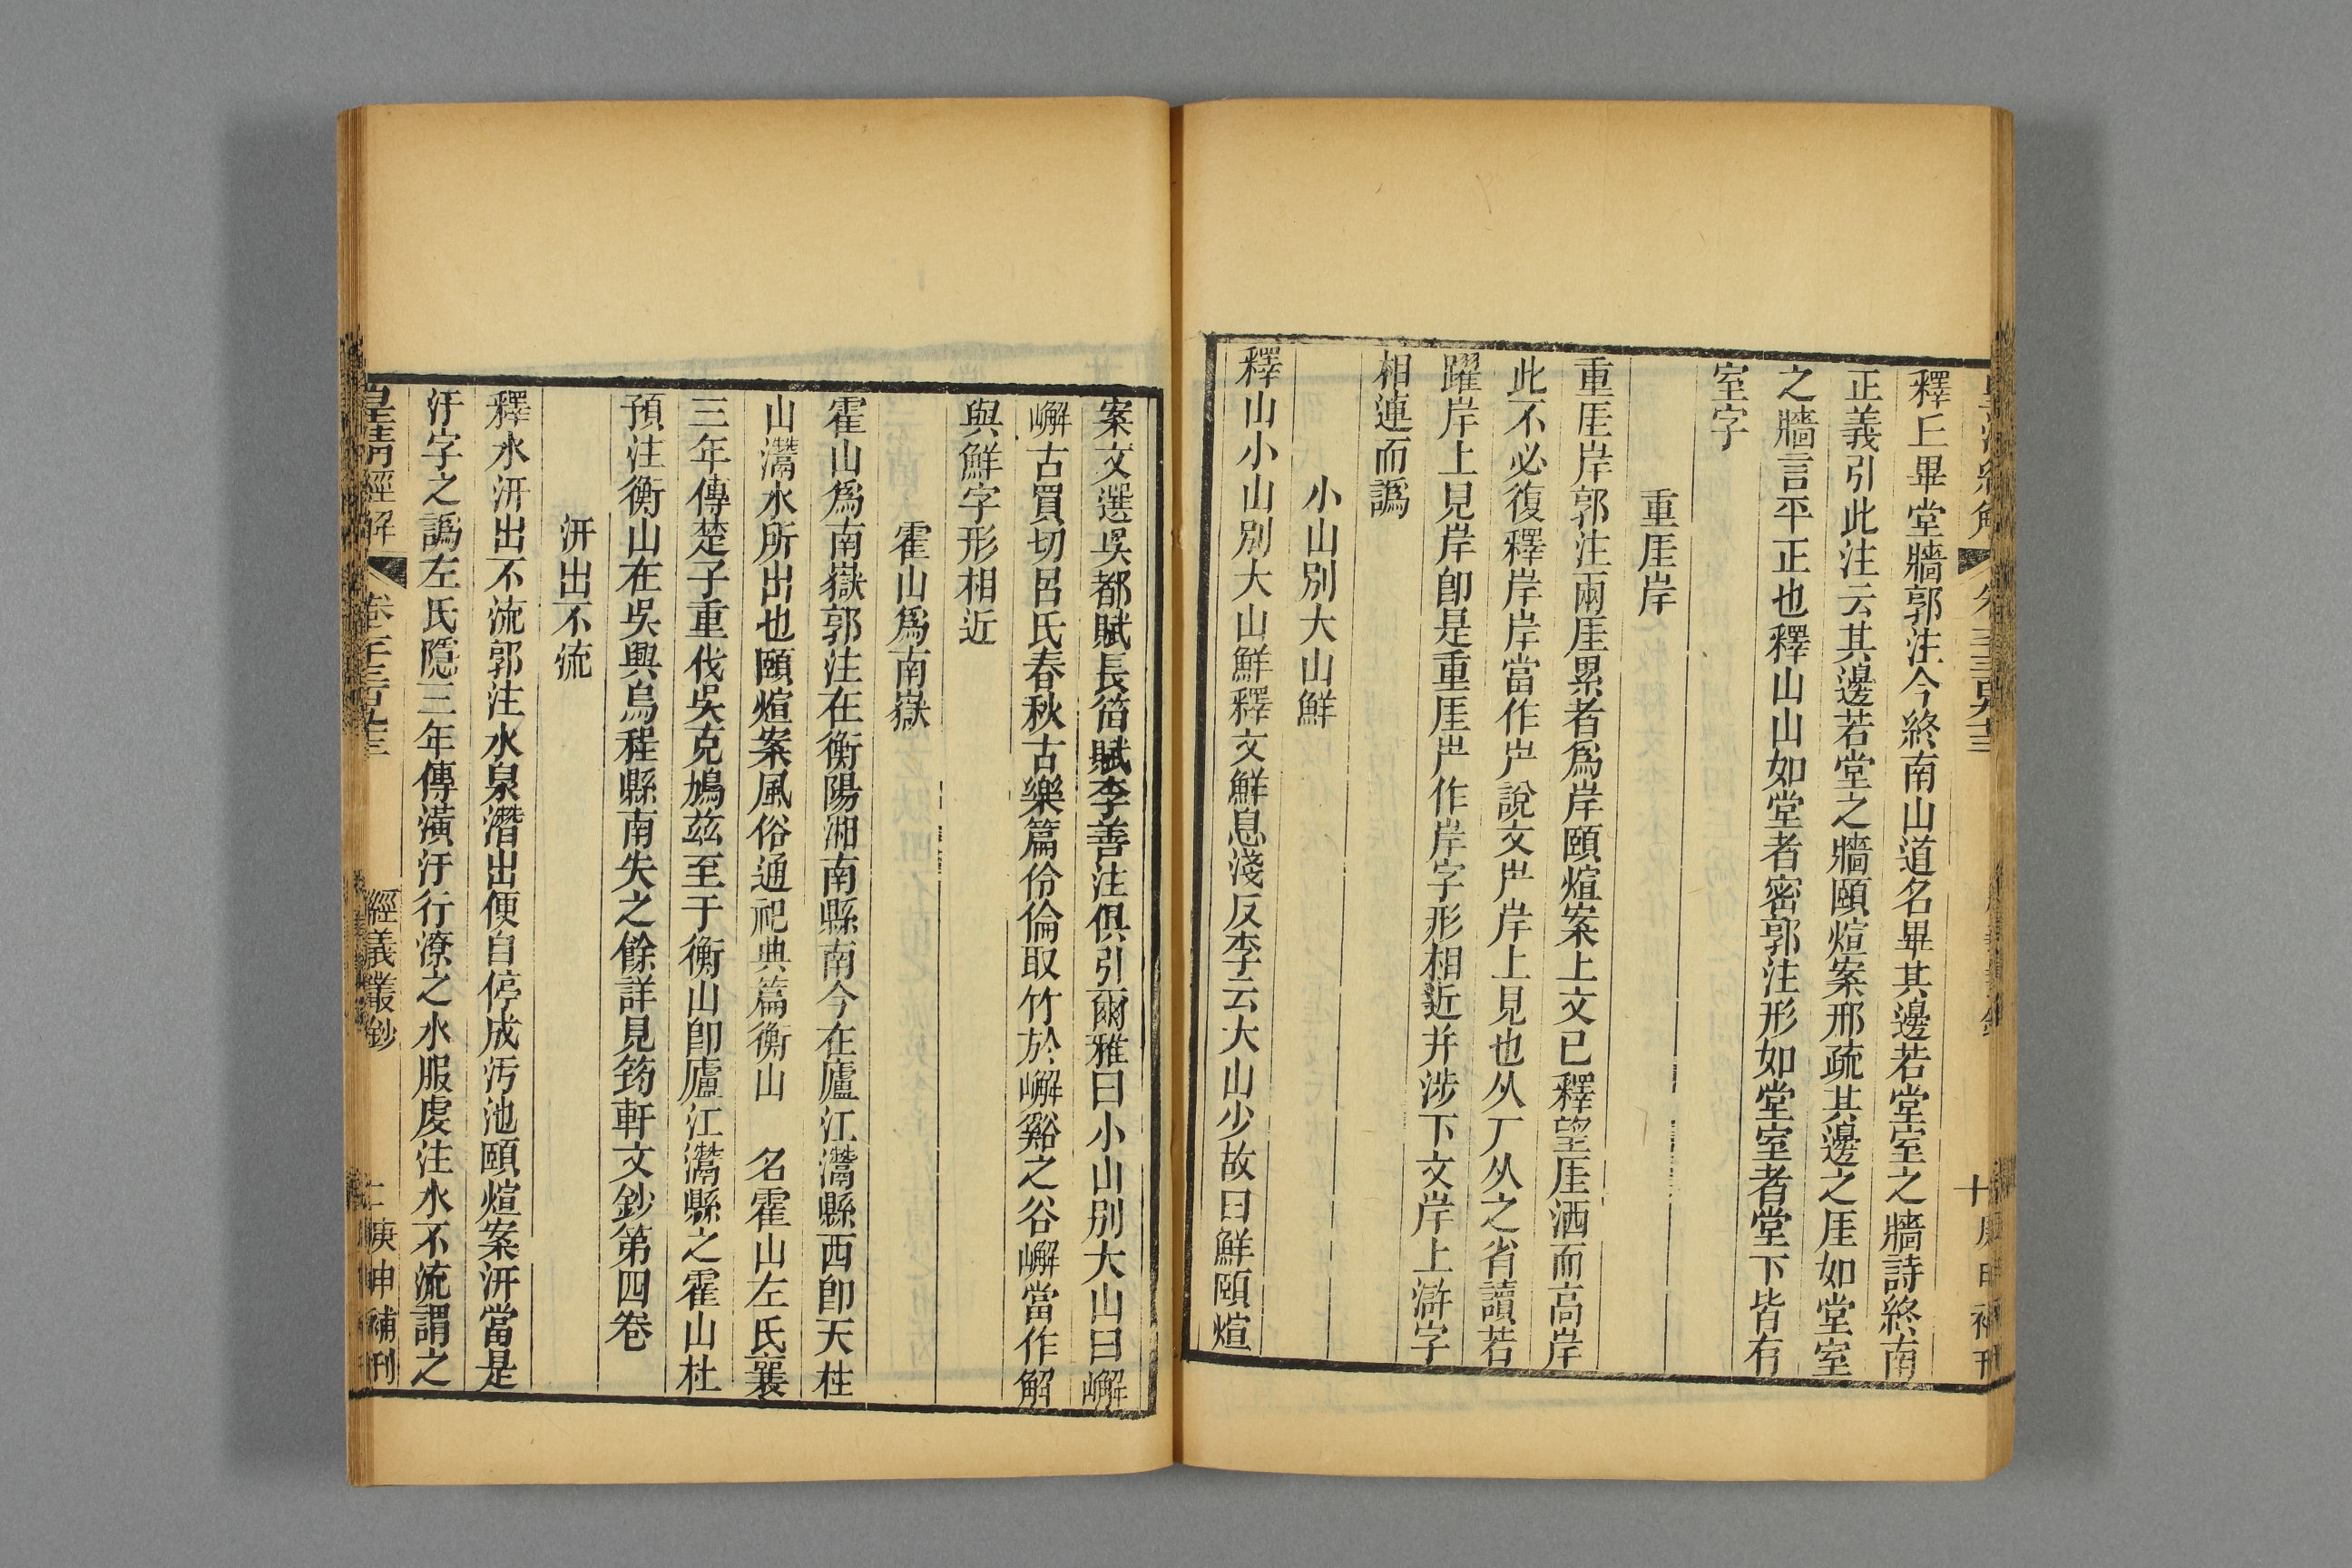 釋丘畢堂牆郭注今終南山道名畢其邊若堂室之牆詩終南
正義引此注云其邊若堂之牆頤煊案邢疏其邊之厓如堂室
之牆言平正也釋山山如堂者密郭注形如堂室者堂下皆有
室字
重厓岸
重厓岸郭注兩厓累者爲岸頤煊案上文已釋望厓洒而高岸
此不必復釋岸岸當作屵說文屵岸上見也从厂从之省讀若
躍岸上見岸卽是重厓屵作岸字形相近并涉下文岸上滸字
相連而譌
小山別大山鮮
釋山小山別大山鮮釋文鮮息淺反李云大山少故曰鮮頤煊
案文選吳都賦長笛賦李善注俱引爾雅曰小山別大山曰嶰
嶰古買切呂氏春秋古樂篇伶倫取竹於嶰谿之谷嶰當作解
與鮮字形相近
霍山爲南嶽
霍山爲南嶽郭注在衡陽湘南縣南今在廬江灊縣西卽天柱
山灊水所出也頤煊案風俗通祀典篇衡山 名霍山左氏襄
三年傳楚子重伐吳克鳩茲至于衡山卽廬江灊縣之霍山杜
預注衡山在吳興烏程縣南失之餘詳見筠軒文鈔第四卷
汧出不流
釋水汧出不流郭注水泉潛出便自停成汚池頤煊案汧當是
汙字之譌左氏隱三年傳潢汙行潦之水服虔注水不流謂之
皇清經解
經義叢鈔
庚申補刊